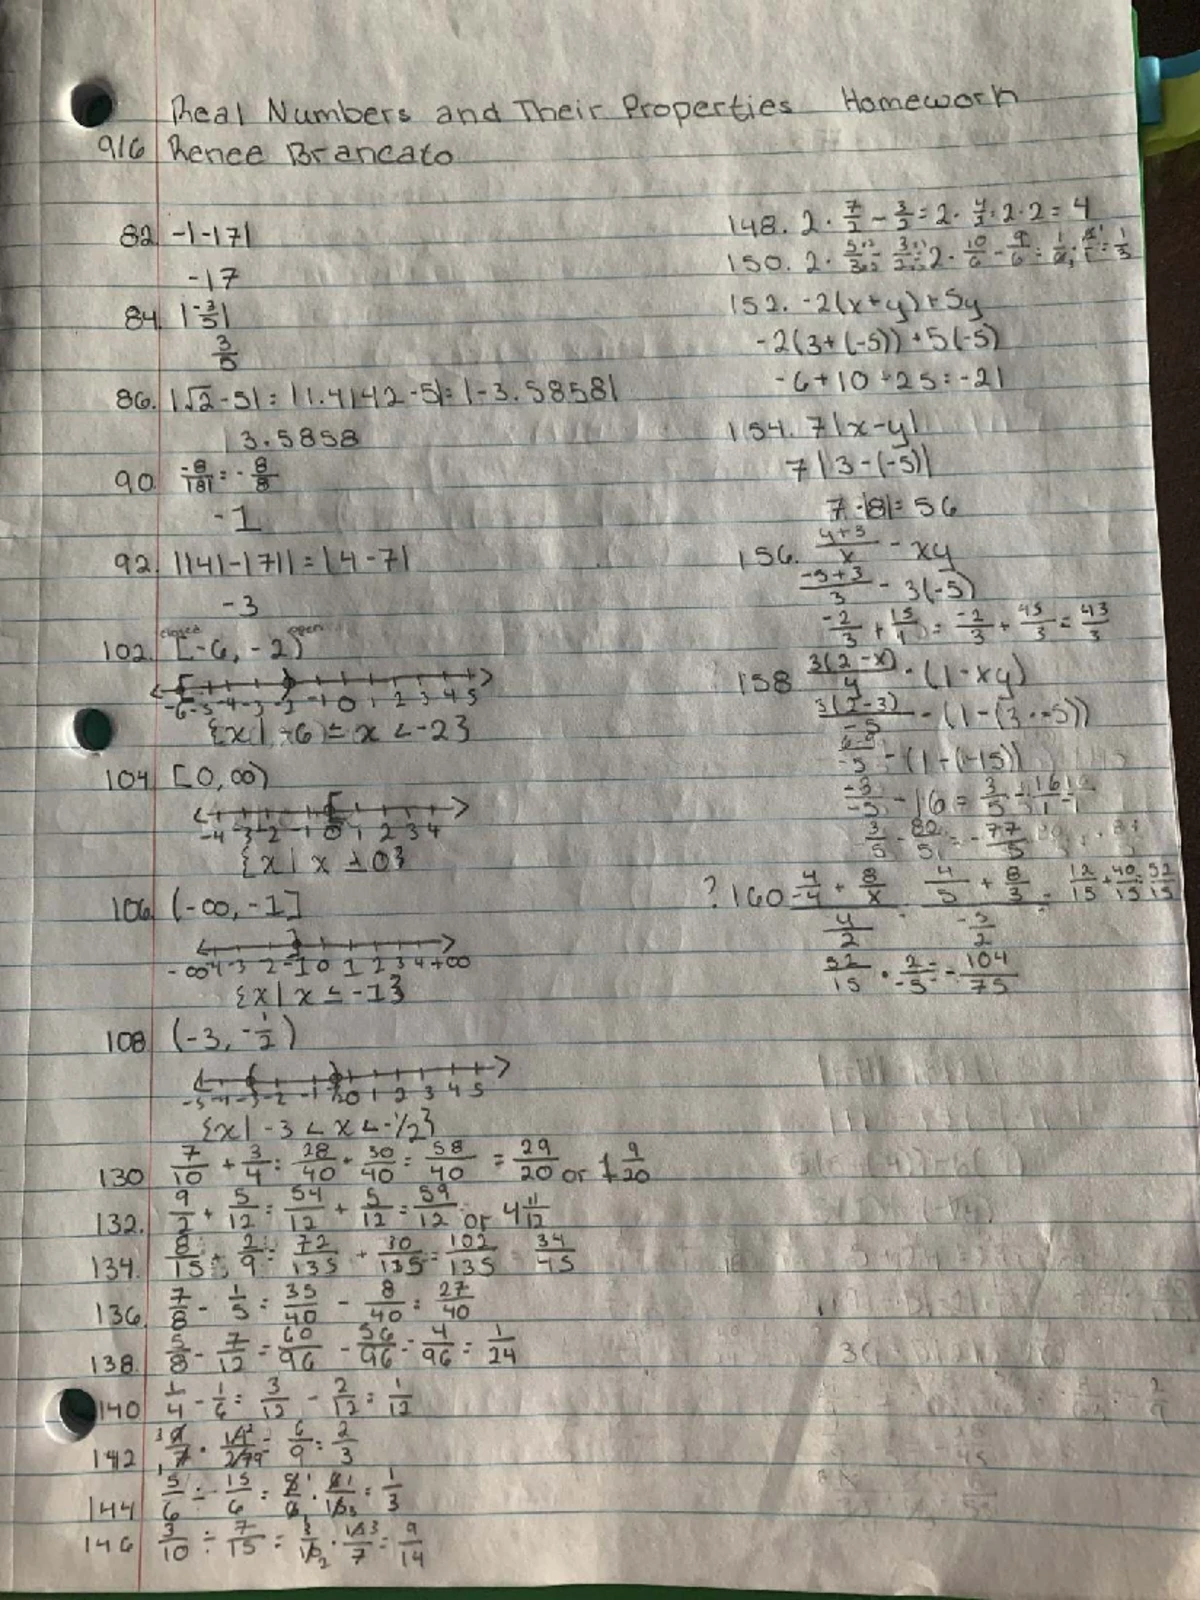 Real Numbers and Their Properties Homework
9/6 Renee Brancato
82. -|-17|
-17
84. |-3/5|
3/5
86. |√2-5| = |1.4142-5| = |-3.5858|
3.5858
90. -8/|8| = -8/8
-1
92. ||4|-|7|| = |4-7|
-3
closed open
102. [-6, -2)
-6 -5 -4 -3 -2 -1 0 1 2 3 4 5
{x| -6 ≤ x < -2}
104. [0, ∞)
-4 -3 -2 -1 0 1 2 3 4
{x| x ≥ 0}
106. (-∞, -1]
-∞ -4 -3 -2 -1 0 1 2 3 4 +∞
{x| x ≤ -1}
108. (-3, -1/2)
-5 -4 -3 -2 -1 0 1 2 3 4 5
{x| -3 < x < -1/2}
130. 7/10 + 3/4 = 28/40 + 30/40 = 58/40 = 29/20 or 1 9/20
132. 9/2 + 5/12 = 54/12 + 5/12 = 59/12 or 4 11/12
134. 8/15 + 2/9 = 72/135 + 30/135 = 102/135 = 34/45
136. 7/8 - 1/5 = 35/40 - 8/40 = 27/40
138. 5/8 - 7/12 = 60/96 - 56/96 = 4/96 = 1/24
140. 1/4 - 1/6 = 3/12 - 2/12 = 1/12
142. 6/9 = 2/3
144. 5/6 ÷ 15/6 = 1/3
146. 3/10 ÷ 7/15 = 3/10 · 15/7 = 9/14
148. 2 · 7/2 - 3/2 = 2 · 4/2 = 2·2 = 4
150. 2 · 5/3 - 3/2 = 2 · 10/6 - 9/6 = 1/3
152. -2(x+y)+5y
-2(3+(-5))+5(-5)
-6+10-25=-21
154. 7|x-y|
7|3-(-5)|
7·|8|=56
156. (y+3)/x - xy
(-5+3)/3 - 3(-5)
-2/3 + 15/1 = -2/3 + 45/3 = 43/3
158. 3(2-x)/y - (1-xy)
3(2-3)/-5 - (1-(3·-5))
(6-9)/-5 - (1-(-15))
-3/-5 - 16 = 3/5 - 16/1
3/5 - 80/5 = -77/5
? 160. 4/-4 + 8/x 4/5 + 8/3 = 12/15 + 40/15 = 52/15
y/2 -5/2
52/15 · 2/-5 = -104/75